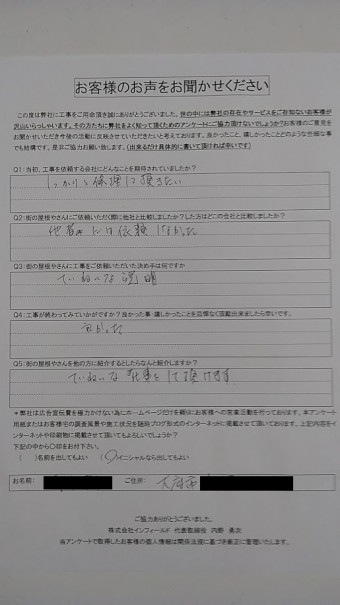 お客様のお声をお聞かせください
この度は弊社に工事をご用命頂き誠にありがとうございました。世の中には弊社の存在やサービスをご存知ないお客様が
沢山いらっしゃいます。その方たちに弊社をよく知って頂くためのアンケートにご協力頂けないでしょうか？お客様のご意見を
お聞かせいただき今後の活動に反映させていただきたいと考えております。良かったこと、嬉しかったことどのような些細な事
でも結構です。是非ご協力お願い致します。(出来るだけ具体的に書いて頂ければ幸いです)
Q1：当初、工事を依頼する会社にどんなことを期待されていましたか？
しっかり修理して頂きたい
Q2：街の屋根やさんにご依頼いただく際に他社と比較しましたか？した方はどこの会社と比較しましたか？
他者には依頼しなかった
Q3：街の屋根やさんに工事をご依頼いただいた決め手は何ですか
ていねいな説明
Q4：工事が終わってみていかがですか？当かった事・嬉しかったことを忌憚なく記載出来ましたら幸いです。
良かった
Q5：街の屋根やさんを他の方に紹介するとしたらなんと紹介しますか？
ていねいな仕事をして頂けます
＊弊社は広告宣伝費を極力かけない為にホームページだけを頼りにお客様への営業活動を行っております。本アンケート
用紙またはお客様宅の調査風景や施工状況を随時ブログ形式のインターネットに掲載させて頂いております。上記内容をイ
ンターネットや印刷物に掲載させて頂いてもよろしいでしょうか？
下記の中から○印をお付下さい。
( )名前を出してもよい (○)イニシャルなら出してもよい
お名前： ご住所：
ご協力ありがとうございました。
株式会社インフィールド 代表取締役 内野
当アンケートで取得したお客様の個人情報は関係法規に基づき厳正に管理いたします。